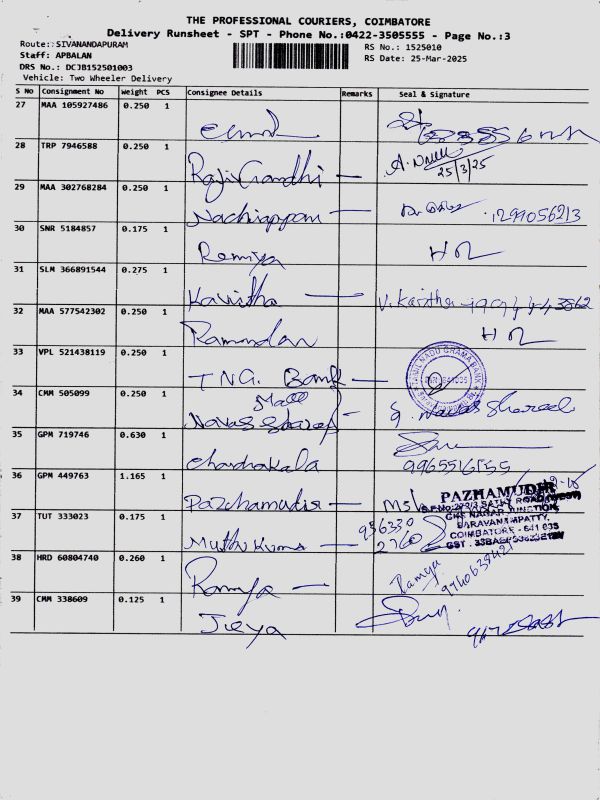 THE PROFESSIONAL COURIERS, COIMBATORE
Delivery Runsheet - SPT - Phone No.:0422-3505555 - Page No.:3
Route: SIVANANDAPURAM
RS No.: 1525010
Staff: APBALAN
RS Date: 25-Mar-2025
DRS No.: DCJB152501003
Vehicle: Two Wheeler Delivery
S No Consignment No Weight PCS Consignee Details Remarks Seal & Signature
27 MAA 105927486 0.250 1
28 TRP 7946588 0.250 1 Rajiv Gandhi 25/3/25
29 MAA 302768284 0.250 1 Nachiappan
30 SNR 5184857 0.175 1 Ramya
31 SLM 366891544 0.275 1 Kavitha V. Kavitha
32 MAA 577542302 0.250 1 Ramandan
33 VPL 521438119 0.250 1 T.N.G. Bank
TAMIL NADU GRAMA BANK
34 CMM 505099 0.250 1 Navas Shareef
35 GPM 719746 0.630 1 Chandrakala 9965516155
36 GPM 449763 1.165 1 Pazhamudir
PAZHAMUDIR
SATHY ROAD
JUNCTION,
SARAVANAMPATTY,
COIMBATORE - 641 035
37 TUT 333023 0.175 1 Muthu Kumar 956330
2760
38 HRD 60804740 0.260 1 Ramya Ramya
39 CMM 338609 0.125 1 Jeya